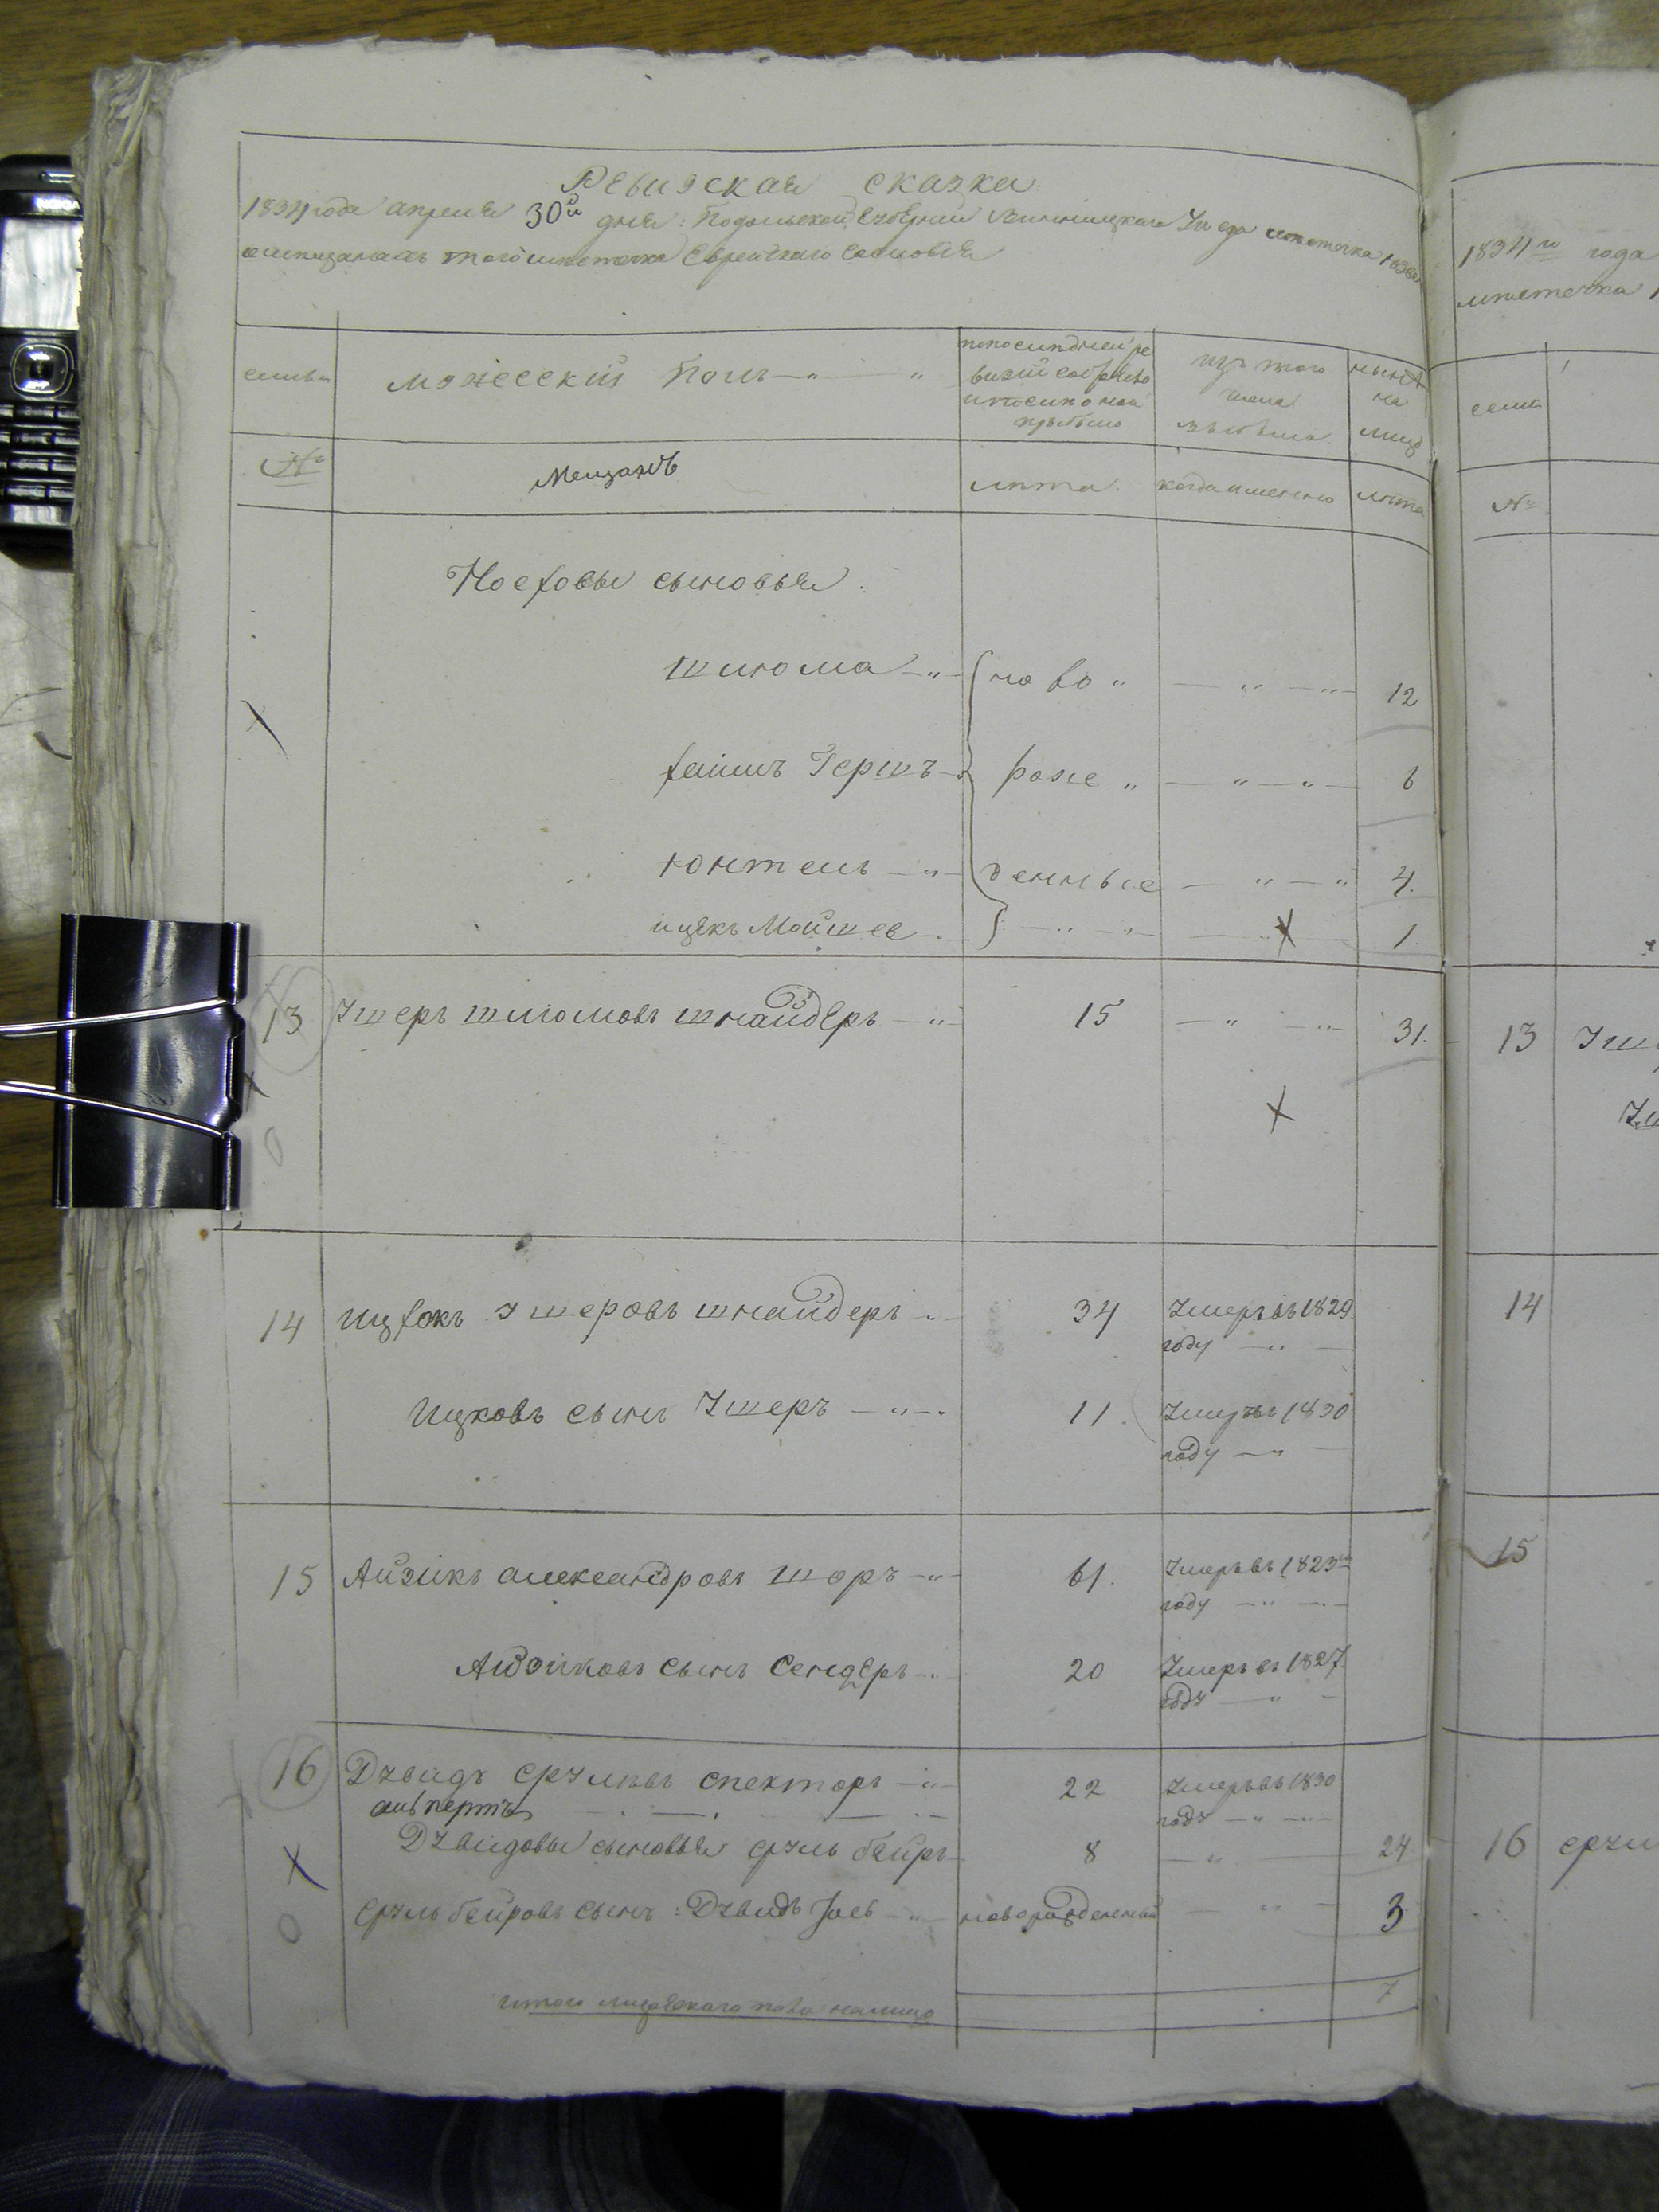 Ревизская сказка
1834 года апреля 30й дня: Подольской Губернии Винницкаго Уезда местечка
того местечка Еврейского Сословья
семьи
мужеский полъ
по последней ре
визии состояло
и после оной
прибыло
изъ того
числа
выбыло
ныне
на
лицо
№
Мещанъ
лета
когда именно
лета
Иосховы сыновья
шлюома 12
ново
хаимъ Гершъ 6
рож
юнтель 4
денные
ицекъ Мойше 1
13 Ушеръ шлюомовъ шнайдеръ 15 31
14 Ицхокъ Ушеровъ шнайдеръ 34 Умеръ въ 1829
году
Ицковъ сынъ Ушеръ 11 Умеръ въ 1830
году
15 Айзикъ александровъ шоръ 61 Умеръ въ 1823
году
Айзиковъ сынъ Сендеръ 20 Умеръ въ 1827
году
16 Дувидъ срулевъ спекторъ 22 Умеръ въ 1830
альпертъ году
Дувидовы сыновья сруль бейръ 8 24
сруль бейровъ сынъ: Дувидъ новорожденный 3
Итого мужескаго пола налицо 7
1834го года
местечка
семьи
№
13 Уш
14
15
16 срул